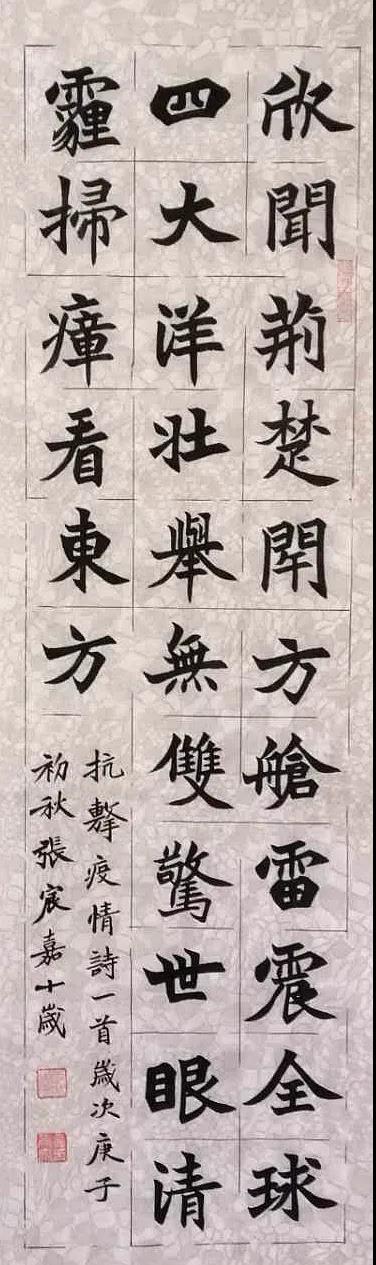 欣聞荊楚開方艙雷震全球
四大洋壯舉無雙驚世眼清
霾掃瘴看東方
抗擊疫情詩一首歲次庚子
初秋張宸嘉十歲